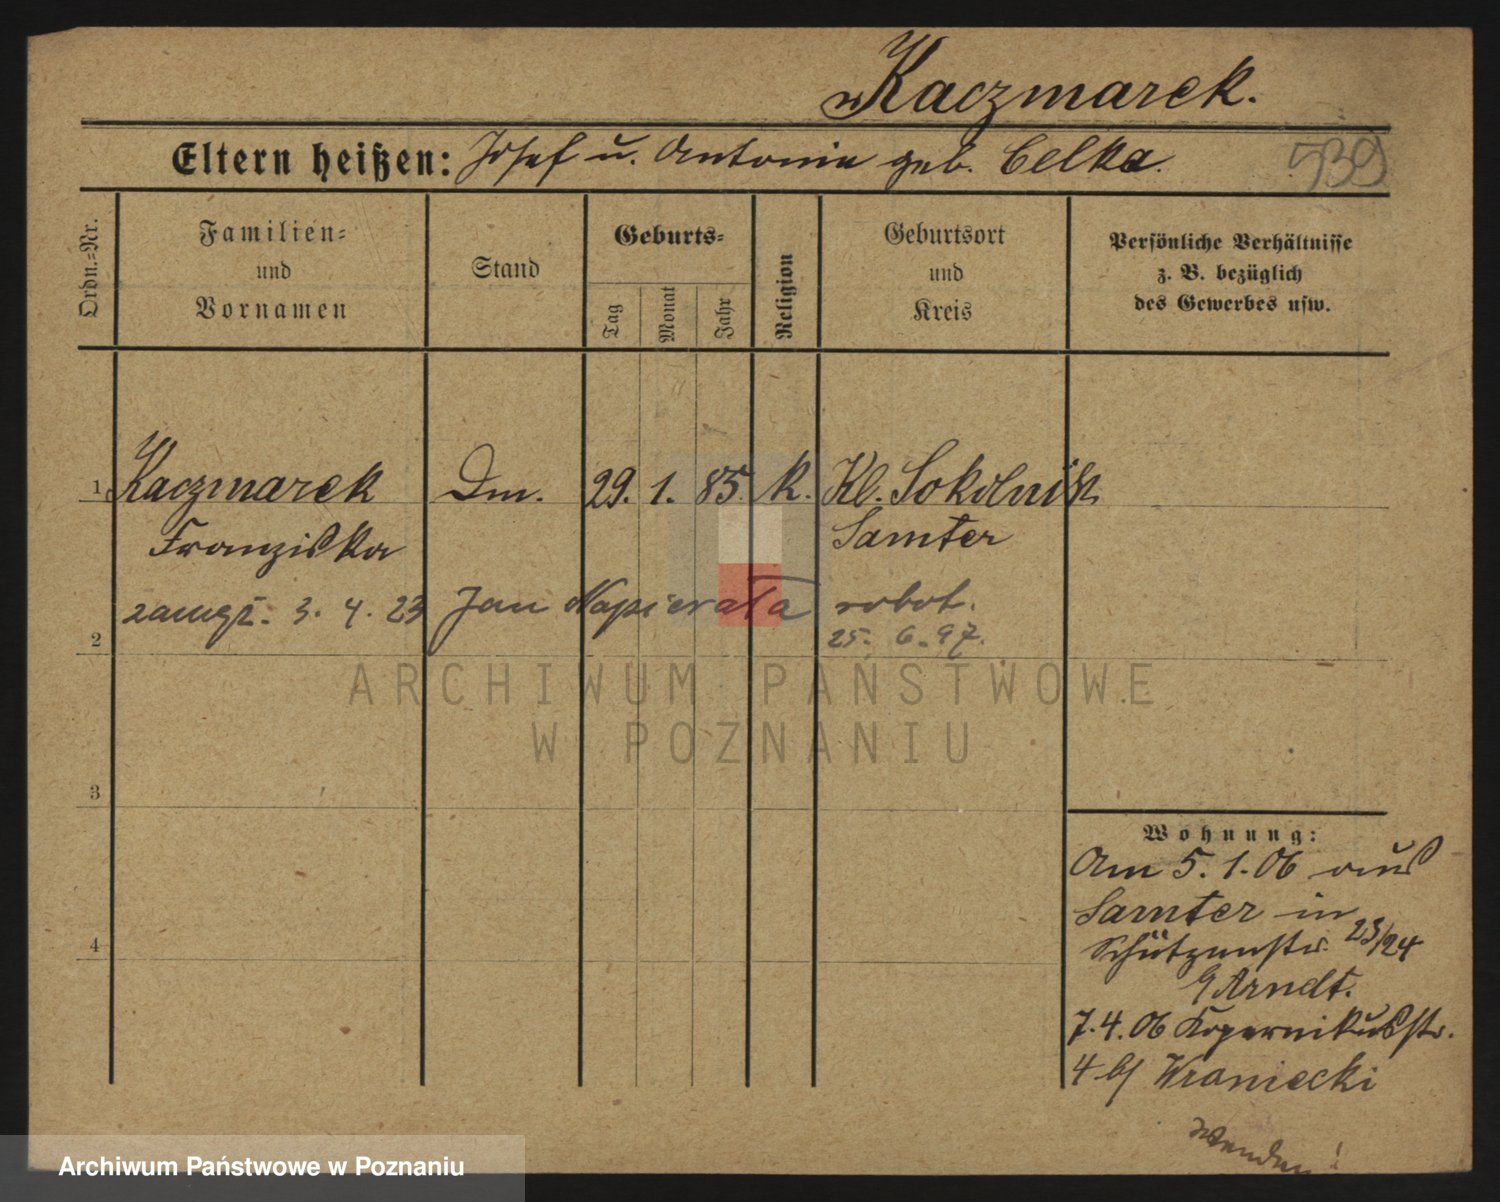 Kaczmarek.
Eltern heißen: Josef u. Antonie geb. Celka.
539
Ordn.=Nr.
Familien=
und
Vornamen
Stand
Geburts=
Tag
Monat
Jahr
Religion
Geburtsort
und
Kreis
Persönliche Verhältnisse
z. B. bezüglich
des Gewerbes usw.
1 Kaczmarek Dm. 29. 1. 85 k. Kl. Sokolnik
Franziska Samter
zamęż. 3. 4. 23 Jan Napierała robot.
2 25. 6. 97.
ARCHIWUM PAŃSTWOWE
W POZNANIU
3
4
Wohnung:
Am 5.1.06 aus
Samter in
Schützenstr. 23/24
Arndt.
7.4.06 Kopernikusstr.
4 b/ Wraniecki
wenden!
Archiwum Państwowe w Poznaniu